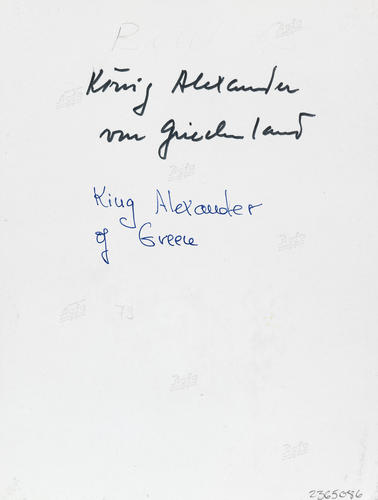 König Alexander
von Griechenland
King Alexander
of Greece
73
2365086